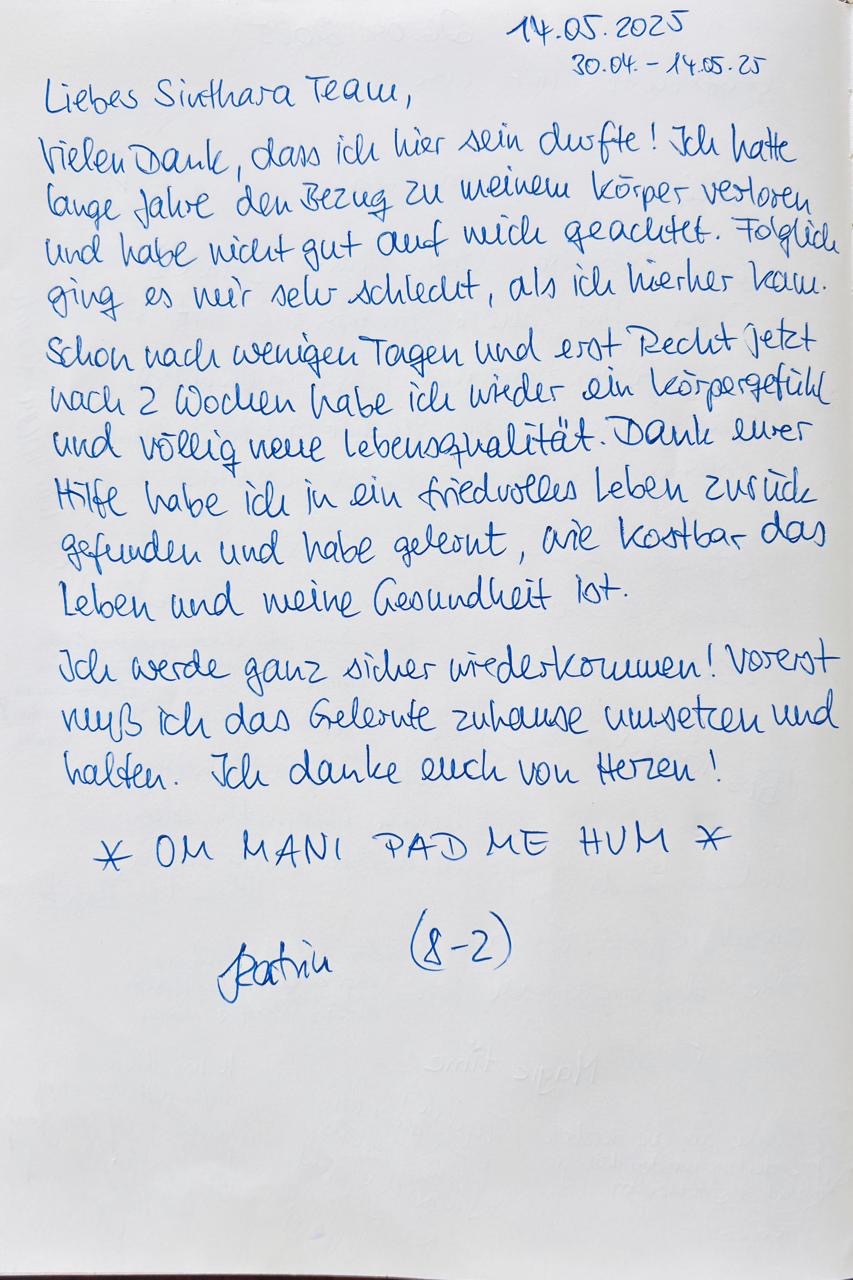 14.05.2025
30.04. - 14.05.25
Liebes Sinthara Team,
Vielen Dank, dass ich hier sein durfte! Ich hatte
lange Jahre den Bezug zu meinem Körper verloren
und habe nicht gut auf mich geachtet. Folglich
ging es mir sehr schlecht, als ich hierher kam.
Schon nach wenigen Tagen und erst Recht jetzt
nach 2 Wochen habe ich wieder ein Körpergefühl
und völlig neue Lebensqualität. Dank eurer
Hilfe habe ich in ein friedvolles Leben zurück
gefunden und habe gelernt, wie kostbar das
Leben und meine Gesundheit ist.
Ich werde ganz sicher wiederkommen! Vorerst
muß ich das Gelernte zuhause umsetzen und
halten. Ich danke euch von Herzen!
* OM MANI PAD ME HUM *
Katrin (8-2)